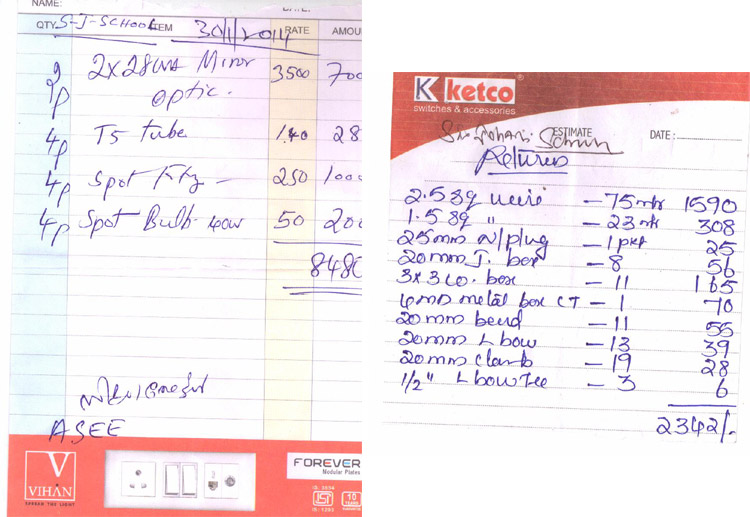 NAME: DATE:
QTY. S-J-SCHOOL ITEM 30/1/2014 RATE AMOU
2p 2x28wts Mirror 3500 700
optic.
4p T5 tube 1.40 28
4p Spot Ftg - 250 1000
4p Spot Bulb 40w 50 200
8480
ASEE
V
VIHAN
SPREAD THE LIGHT
FOREVER
Modular Plates
ISI
10
YEARS
K ketco ®
switches & accessories
ESTIMATE DATE :
School
Returns
2.5 sq wire - 75 mtr 1590
1.5 sq " - 23 mtr 308
25mm w/plug - 1 pkt 25
20mm J. box - 8 56
3x3 co. box - 11 165
4mm metal box CT - 1 70
20mm bend - 11 55
20mm L bow - 13 39
20mm clamb - 19 28
1/2" L bow Tee - 3 6
2342/-